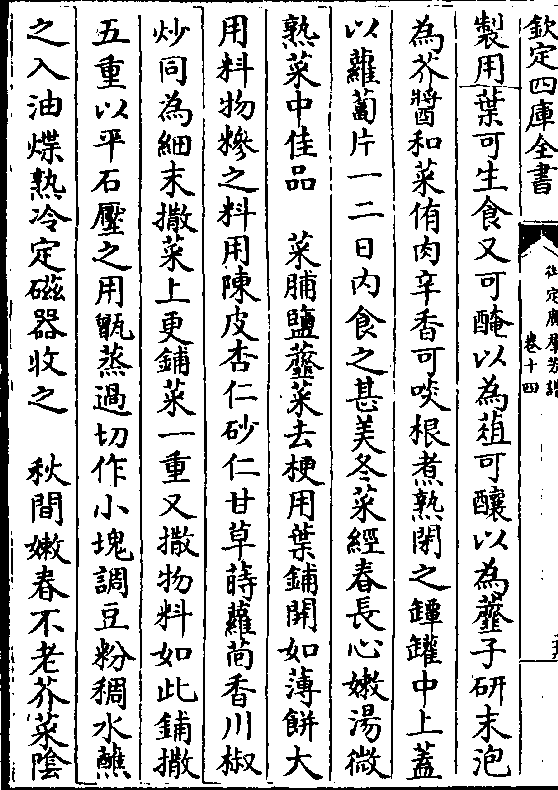 欽定四庫全書
御定廣羣芳譜
卷十四
製用葉可生食又可醃以為葅可釀以為虀子研末泡
為芥醬和菜侑肉辛香可啖根煮熟閉之罈罐中上蓋
以蘿蔔片一二日内食之甚美冬菜經春長心嫩湯微
熟菜中佳品　菜脯鹽虀菜去梗用葉鋪開如薄餅大
用料物糝之料用陳皮杏仁砂仁甘草蒔蘿茴香川椒
炒同為細末撒菜上更鋪菜一重又撒物料如此鋪撒
五重以平石壓之用甑蒸過切作小塊調豆粉稠水蘸
之入油煠熟冷定磁器收之　秋間嫩春不老芥菜隂